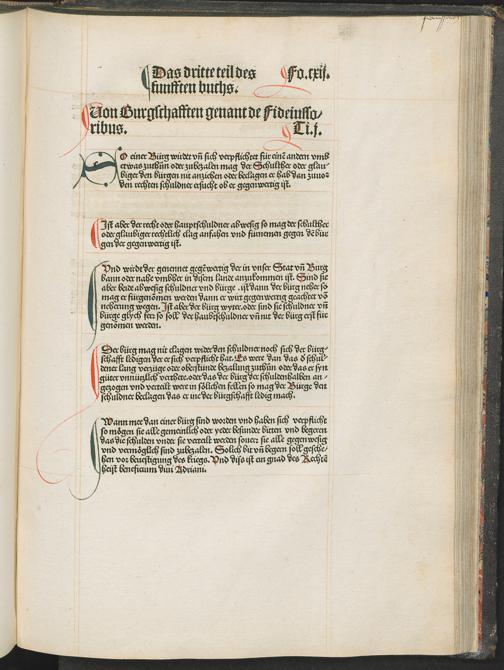 Das dritte teil des
Fo. cxij.
funfften buchs.
Von Burgschafften genant de Fideiusso/
ribus.
Ti. j.
So einer Bürg würdet vñ sich verpflichtet für einē andern vmb
etwas zuthůn oder zubezalen mag der Schulther oder glau/
biger den bürgen nit anziehen oder beclagen er hab dan zuuor
den rechten schuldner ersucht ob er gegenwertig ist.
Ist aber der recht oder hauptschuldner abwesig so mag der schulther
oder glaubiger rechtlich clag anfahen vnd fürnemen gegen dē bur
gen der gegenwertig ist.
Vnd würdt der genennet gegēwertig der in vnser Stat vñ Burg
bann oder nahe vmbher in disem lande anzukommen ist. Sind sie
aber beide abwesig schuldner vnd bürge. ist dann der bürg neher so
mag er fürgenōmen werden dann er wirt gegenwertig geachtet vō
neherung wegen. Ist aber der bürg wyter. oder sind sie schuldner vñ
bürge glych ferr so soll der haubtschuldner vñ nit der bürg erst für
genōmen werden.
Der bürg mag nit clagen wider den schuldner noch sich der bürg/
schafft ledigen der er sich verpflicht hat. Es were dan das d schul/
dener lang verzüge oder oberstünde bezalung zuthůn oder das er syn
güter vnnützlich verthete. oder das der bürg der schuldenhalben an/
gezogen vnd verteilt wer in sölichen fellen so mag der Bürge den
schuldner beclagen das er inc der bürgschafft ledig mach.
Wann mer dan einer bürg sind worden vnd haben sich verpflicht
so mögen sie alle gemeinlich oder yeder besunder bitten vnd begeren
das die schulden vnder sie verteilt werden souer sie alle gegenwesig
vnd vermöglich sind zubezalen. Solich bit vñ begern soll gesche/
hen vor beuestigung des kriegs. Vnd diss ist ein gnad des Rechtē
heist beneficium diui Adriani.